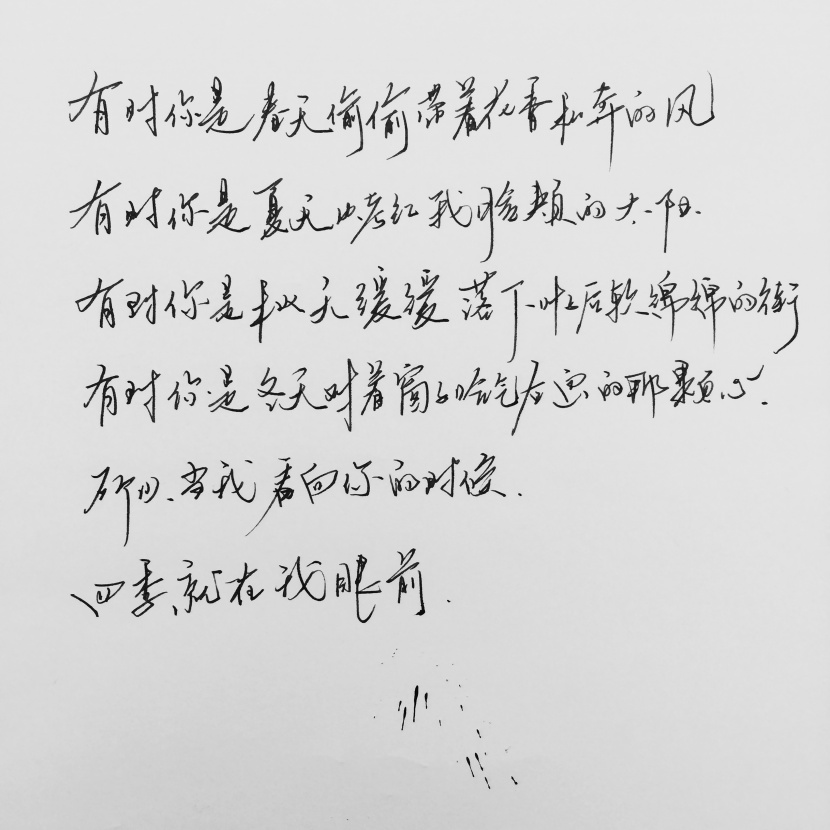 有时你是春天偷偷带着花香私奔的风
有时你是夏天烤红我脸颊的太阳.
有时你是秋天缓缓落下叶后软绵绵的街
有时你是冬天对着窗子哈气后画的那颗心.
所以.当我看向你的时候.
四季就在我眼前.